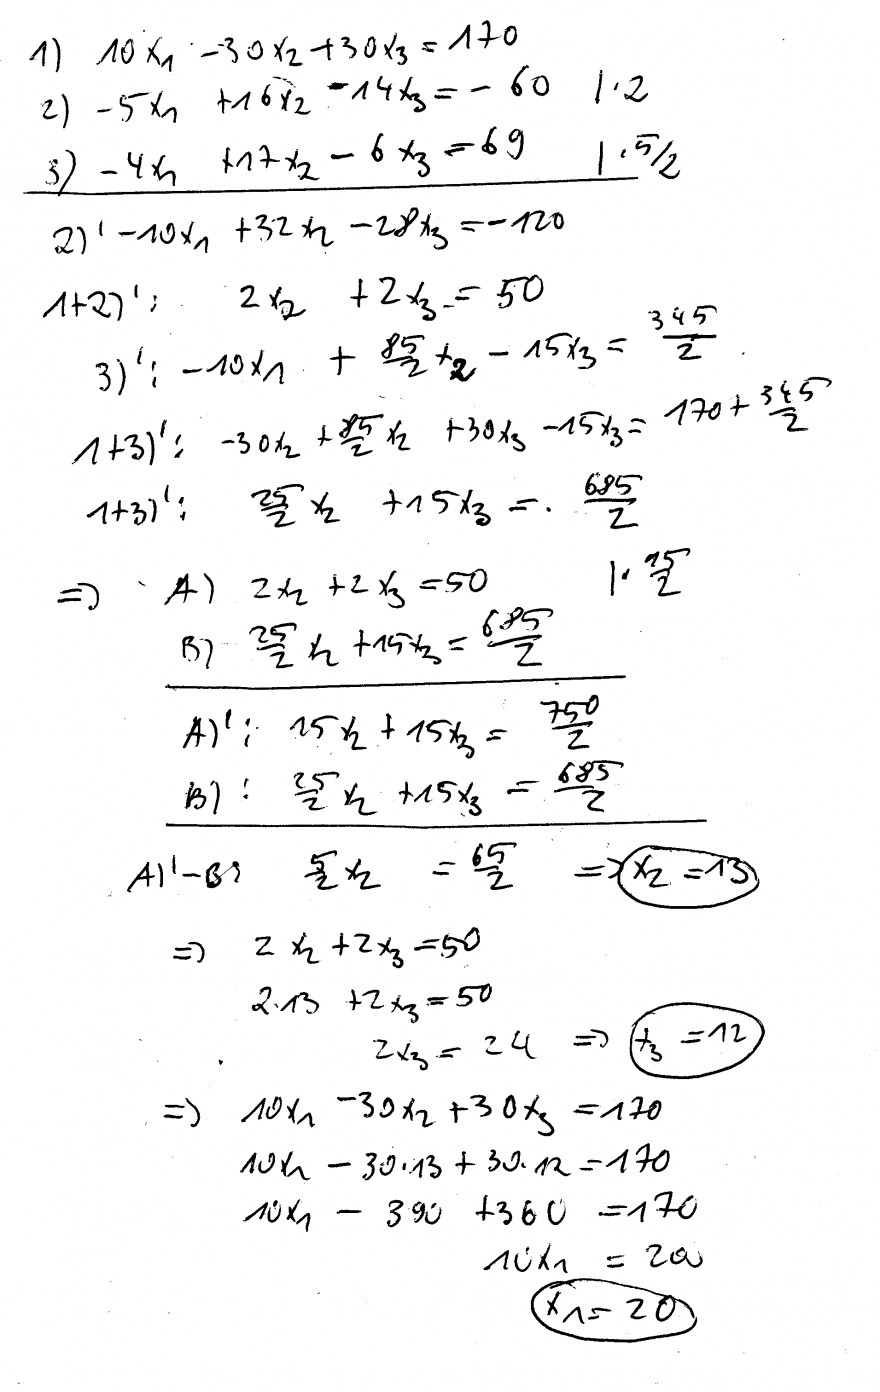 1) 10x₁ -30x₂ +30x₃ = 170
2) -5x₁ +16x₂ -14x₃ = -60 |·2
3) -4x₁ +17x₂ -6x₃ = 69 |·5/2
2)' -10x₁ +32x₂ -28x₃ = -120
1+2)': 2x₂ +2x₃ = 50
3)': -10x₁ + 85/2 x₂ - 15x₃ = 345/2
1+3)': -30x₂ + 85/2 x₂ +30x₃ -15x₃ = 170 + 345/2
1+3)': 25/2 x₂ +15x₃ = 685/2
=> A) 2x₂ +2x₃ = 50 |· 15/2
B) 25/2 x₂ +15x₃ = 685/2
A)': 15x₂ + 15x₃ = 750/2
B): 25/2 x₂ +15x₃ = 685/2
A)'-B: 5/2 x₂ = 65/2 => x₂ = 13
=> 2x₂ +2x₃ = 50
2·13 +2x₃ = 50
2x₃ = 24 => x₃ = 12
=> 10x₁ -30x₂ +30x₃ = 170
10x₁ - 30·13 + 30·12 = 170
10x₁ - 390 +360 = 170
10x₁ = 200
x₁ = 20